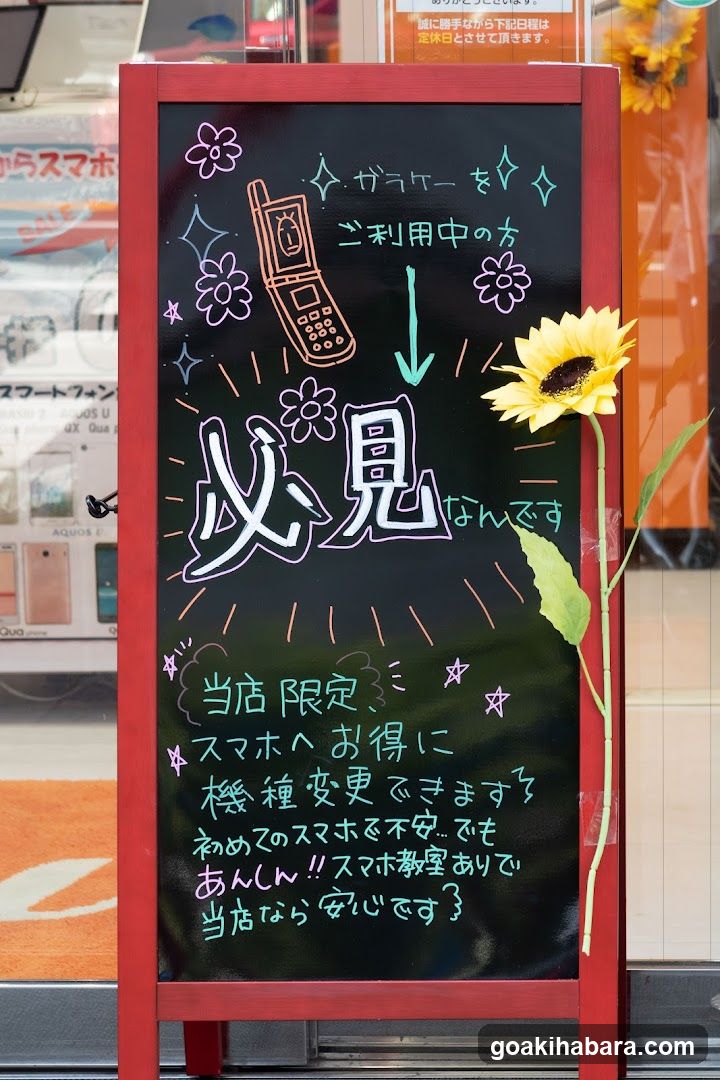 ありがとうございます。
誠に勝手ながら下記日程は
定休日とさせて頂きます。
からスマホ
SALE
スマートフォン
AQUOS U
QX Qua p
AQUOS U
Qua phone
ガラケーを
ご利用中の方
必見なんです
当店限定、
スマホへお得に
機種変更できます
初めてのスマホで不安...でも
あんしん!!スマホ教室ありで
当店なら安心です
goakihabara.com